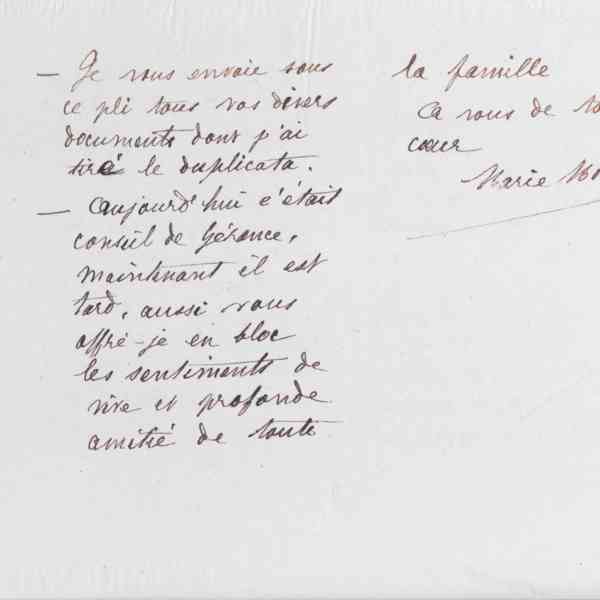 — Je vous envoie sous
ce pli tous vos divers
documents dont j'ai
tiré le duplicata.
— Aujourd'hui c'était
conseil de Gérance,
maintenant il est
tard, aussi vous
offre-je en bloc
les sentiments de
vive et profonde
amitié de toute
la famille
Ca vous de
cœur
Marie